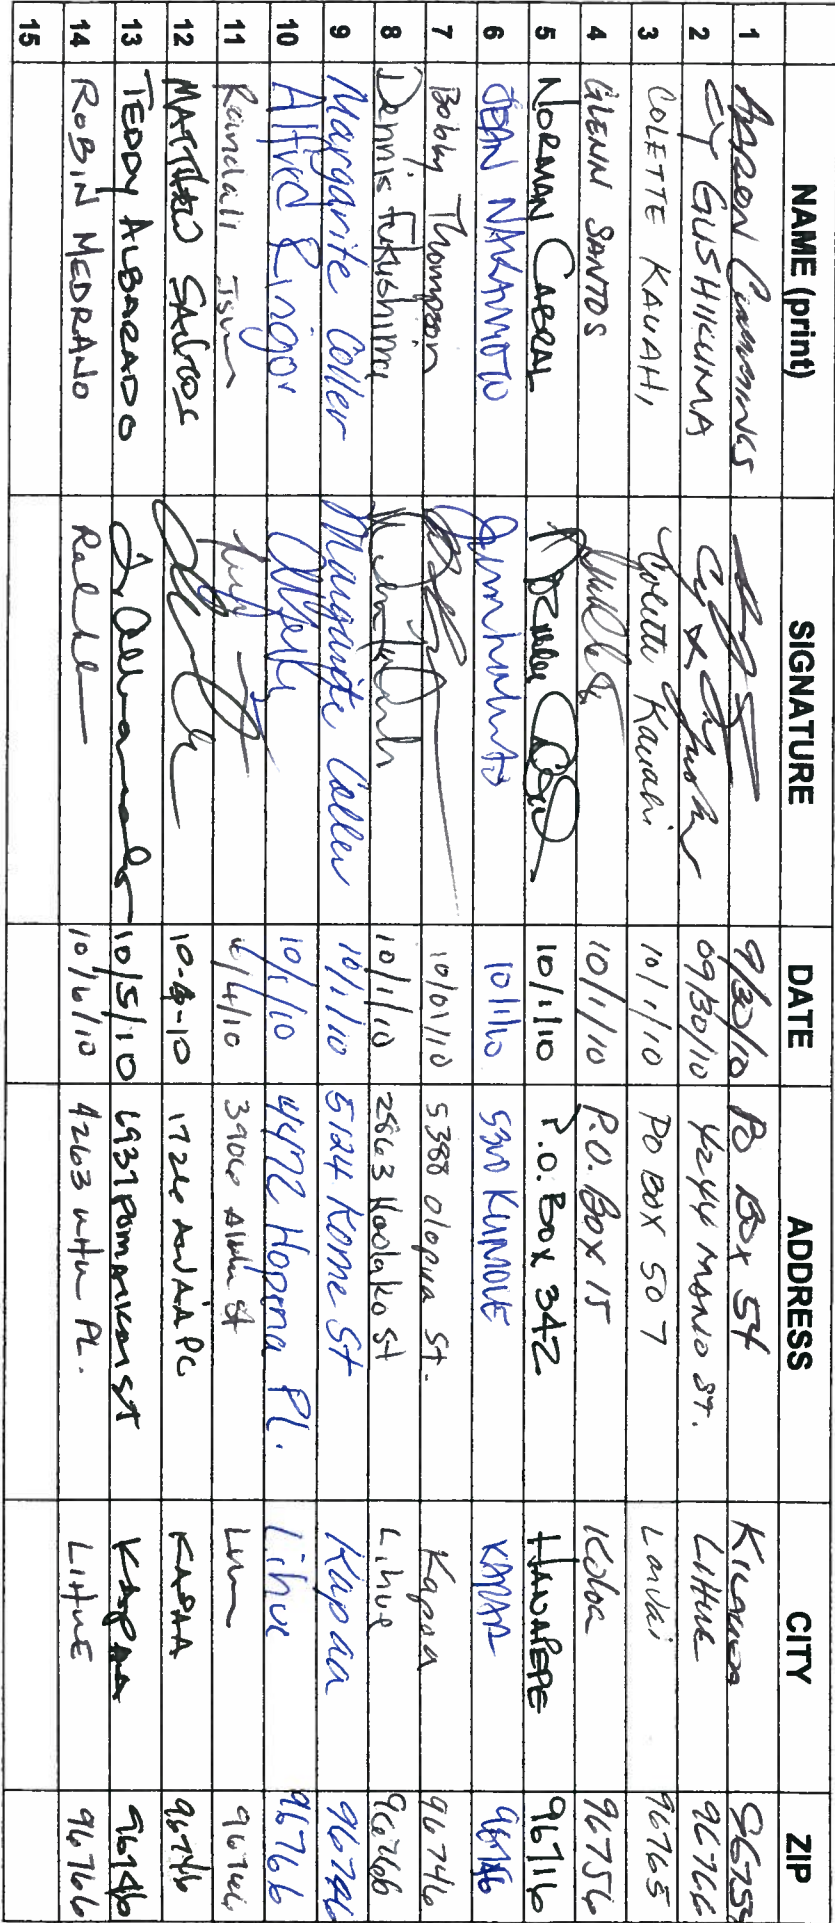 NAME (print) SIGNATURE DATE ADDRESS CITY ZIP
1 AARON Cummings 9/30/10 PO Box 54 Kilauea 96754
2 CY GUSHIKUMA 09/30/10 4244 MANO ST. LIHUE 96766
3 COLETTE KAUAHI Colette Kauahi 10/1/10 PO BOX 507 Lawai 96765
4 GLENN SANTOS 10/1/10 P.O. BOX 15 Koloa 96756
5 NORMAN CABRAL 10/1/10 P.O. Box 342 HANAPEPE 96716
6 JEAN NAKAMOTO 10/1/10 KAPAA 96746
7 Bobby Thompson 10/01/10 5388 Olopua St. Kapaa 96746
8 Dennis Fukushima 10/1/10 2863 Hoolako St Lihue 96766
9 Margarite Coller Margarite Coller 10/1/10 5124 Kome St Kapaa 96746
10 Alfred Ringor 10/1/10 4472 Hopena Pl. Lihue 96766
11 Randall 3906 St 96766
12 MATTHEW SANTOS 10-4-10 1726 PL KAPAA 96746
13 TEDDY ALBARADO 10/5/10 6937 ST KAPAA 96746
14 ROBIN MEDRANO 10/6/10 4263 PL. LIHUE 96766
15